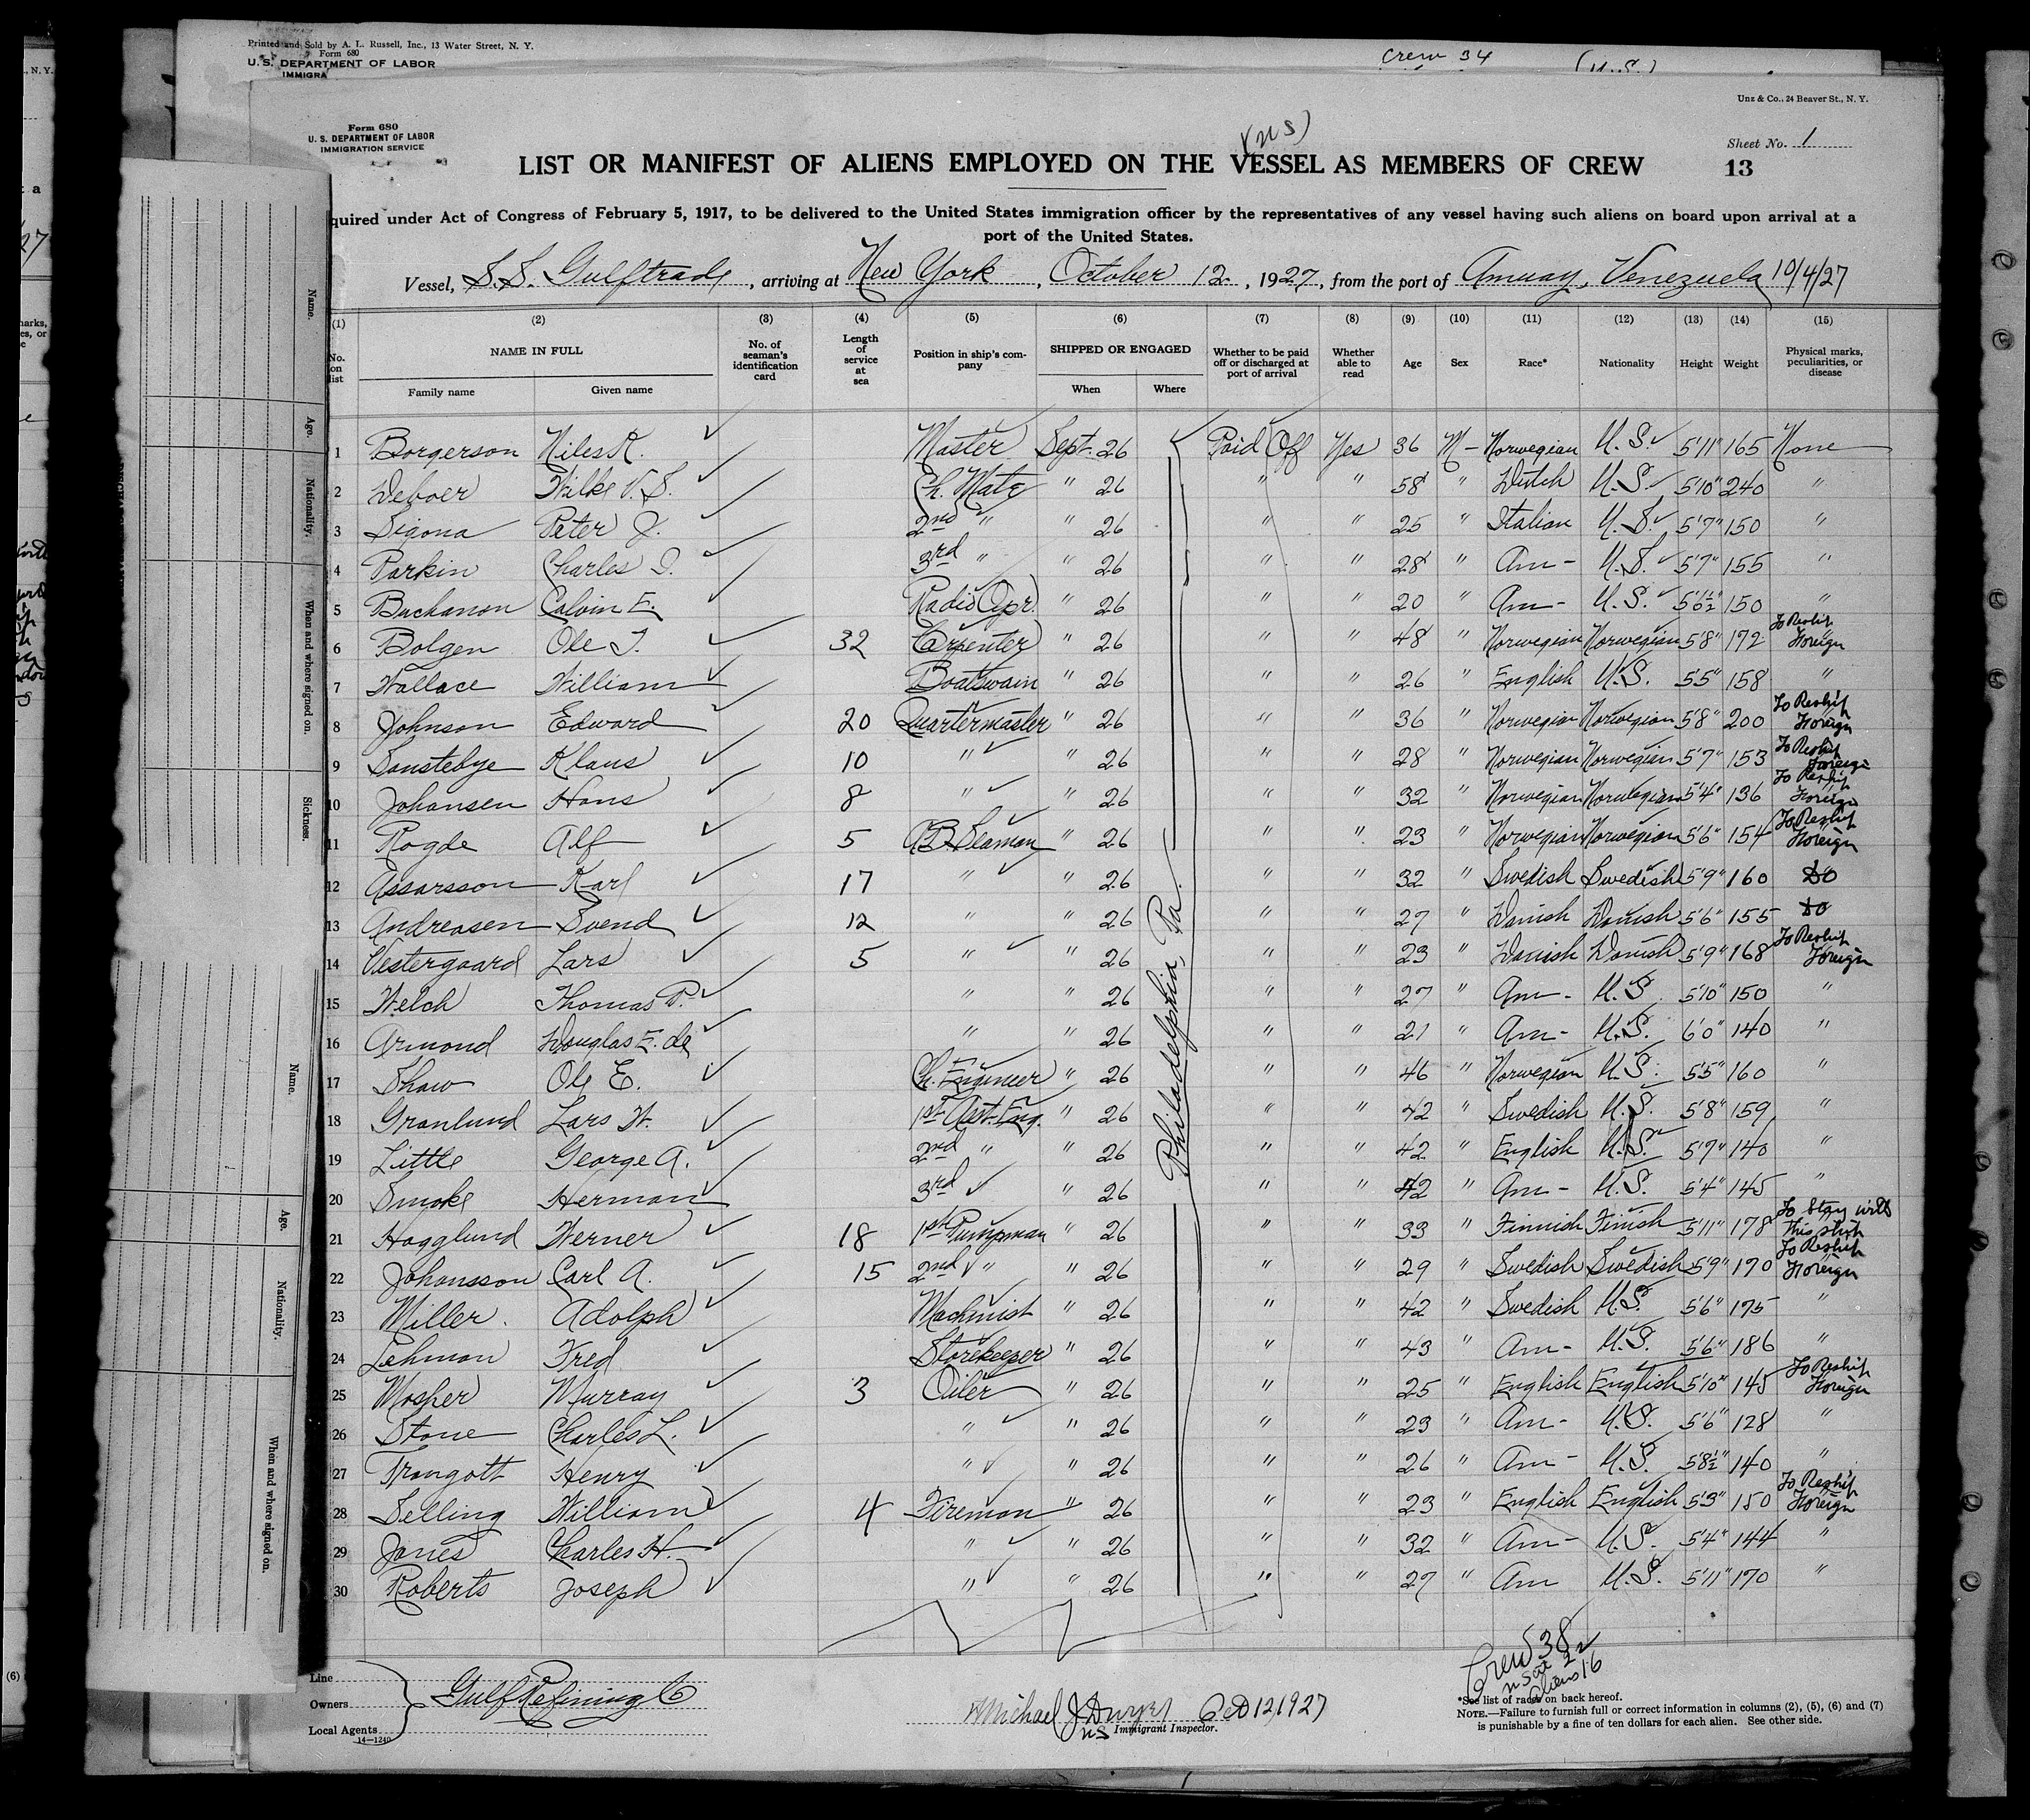 Printed and Sold by A. L. Russell, Inc., 13 Water Street, N. Y.
Form 680
U. S. DEPARTMENT OF LABOR
IMMIGRA
Crew 34
(U.S.)
Unz & Co., 24 Beaver St., N. Y.
Form 680
U. S. DEPARTMENT OF LABOR
IMMIGRATION SERVICE
(US)
Sheet No. 1
LIST OR MANIFEST OF ALIENS EMPLOYED ON THE VESSEL AS MEMBERS OF CREW
13
quired under Act of Congress of February 5, 1917, to be delivered to the United States immigration officer by the representatives of any vessel having such aliens on board upon arrival at a
port of the United States.
Vessel, S.S. Gulftrade, arriving at New York, October 12, 1927, from the port of Amuay, Venezuela 10/4/27
(1) (2) (3) (4) (5) (6) (7) (8) (9) (10) (11) (12) (13) (14) (15)
No. on list NAME IN FULL Family name Given name No. of seaman's identification card Length of service at sea Position in ship's company SHIPPED OR ENGAGED When Where Whether to be paid off or discharged at port of arrival Whether able to read Age Sex Race* Nationality Height Weight Physical marks, peculiarities, or disease
1 Borgerson Niles R. Master Sept. 26 Paid Off Yes 36 M - Norwegian U.S. 5'11 165 None
2 Deboer Wilke V. S. Ch. Mate " 26 " " 58 " Dutch U.S. 5'10" 240 "
3 Sigona Peter J. 2nd " " 26 " " 25 " Italian U.S. 5'7" 150 "
4 Parkin Charles I. 3rd " " 26 " " 28 " Am - U.S. 5'7" 155 "
5 Buchanon Calvin E. Radio Opr. " 26 " " 20 " Am - U.S. 5'6½" 150 "
6 Bolgen Ole T. 32 Carpenter " 26 " " 48 " Norwegian Norwegian 5'8" 172 To Reship Foreign
7 Wallace William Boatswain " 26 " " 26 " English U.S. 5'5" 158 "
8 Johnson Edward 20 Quartermaster " 26 " " 36 " Norwegian Norwegian 5'8" 200 To Reship Foreign
9 Sonstebye Klaus 10 " " 26 " " 28 " Norwegian Norwegian 5'7" 153 To Reship Foreign
10 Johansen Hans 8 " " 26 " " 32 " Norwegian Norwegian 5'4" 136 To Reship Foreign
11 Rogde Alf 5 A.B. Seaman " 26 " " 23 " Norwegian Norwegian 5'6" 154 To Reship Foreign
12 Assarsson Karl 17 " " 26 " " 32 " Swedish Swedish 5'9" 160 Do
13 Andreasen Svend 12 " " 26 " " 27 " Danish Danish 5'6" 155 Do
14 Vestergaard Lars 5 " " 26 " " 23 " Danish Danish 5'9" 168 To Reship Foreign
15 Welch Thomas P. " " 26 " " 27 " Am - U.S. 5'10" 150 "
16 Armond Douglas E. de " " 26 " " 21 " Am - U.S. 6'0" 140 "
17 Shaw Ole E. Ch. Engineer " 26 " " 46 " Norwegian U.S. 5'5" 160 "
18 Granlund Lars W. 1st Asst. Eng. " 26 " " 42 " Swedish U.S. 5'8" 159 "
19 Little George A. 2nd " " 26 " " 42 " English U.S. 5'7" 140 "
20 Smoke Herman 3rd " 26 " " 42 " Am - U.S. 5'4" 145 "
21 Hagglund Werner 18 1st Pumpman " 26 " " 33 " Finnish Finish 5'11" 178 To Stay with this ship
22 Johansson Carl A. 15 2nd " " 26 " " 29 " Swedish Swedish 5'9" 170 To Reship Foreign
23 Miller. Adolph Machinist " 26 " " 42 " Swedish U.S. 5'6" 175 "
24 Lehman Fred Storekeeper " 26 " " 43 " Am - U.S. 5'6" 186 "
25 Mosher Murray 3 Oiler " 26 " " 25 " English English 5'10" 145 To Reship Foreign
26 Stone Charles L. " " 26 " " 23 " Am - U.S. 5'6" 128 "
27 Trangott Henry " " 26 " " 26 " Am - U.S. 5'8½" 140 "
28 Selling William 4 Fireman " 26 " " 23 " English English 5'3" 150 To Reship Foreign
29 Jones Charles H. " " 26 " " 32 " Am - U.S. 5'4" 144 "
30 Roberts Joseph " " 26 " " 27 " Am U.S. 5'11" 170 "
Philadelphia, Pa.
Crew 38
US Cit 22
Aliens 16
Line
Owners Gulf Refining Co
Local Agents
14—1240
Michael J Dwyer Oct 12, 1927
US Immigrant Inspector.
*See list of races on back hereof.
NOTE.—Failure to furnish full or correct information in columns (2), (5), (6) and (7)
is punishable by a fine of ten dollars for each alien. See other side.
Name.
Age.
Nationality.
When and where signed on.
Sickness.
Name.
Age.
Nationality.
When and where signed on.
, N. Y.
(6)